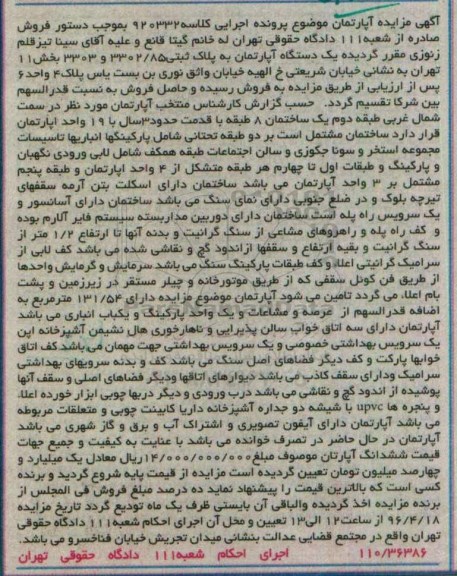 آگهی مزایده آپارتمان موضوع پرونده اجرایی کلاسه۹۲۰۳۳۲ بموجب دستور فروش
صادره از شعبه۱۱۱ دادگاه حقوقی تهران له خانم گیتا قانع و علیه آقای سینا تیزقلم
زنوزی مقرر گردیده یک دستگاه آپارتمان به پلاک ثبتی۳۳۰۲/۸۵ و ۳۳۰۳ بخش۱۱
تهران به نشانی خیابان شریعتی خ الهیه خیابان واثق نوری بن بست یاس پلاک۴ واحد۶
پس از ارزیابی از طریق مزایده به فروش رسیده و حاصل فروش به نسبت قدرالسهم
بین شرکا تقسیم گردد. حسب گزارش کارشناس منتخب آپارتمان مورد نظر در سمت
شمال غربی طبقه دوم یک ساختمان ۸ طبقه با قدمت حدود۳سال با ۱۹ واحد اپارتمان
قرار دارد ساختمان مشتمل است بر دو طبقه تحتانی شامل پارکینگها انباریها تاسیسات
مجموعه استخر و سونا جکوزی و سالن اجتماعات طبقه همکف شامل لابی ورودی نگهبان
و پارکینگ و طبقات اول تا چهارم هر طبقه متشکل از ۴ واحد اپارتمان و طبقه پنجم
مشتمل بر ۳ واحد آپارتمان می باشد ساختمان دارای اسکلت بتن آرمه سقفهای
تیرچه بلوک و در ضلع جنوبی دارای نمای سنگ می باشد ساختمان دارای آسانسور و
یک سرویس راه پله است ساختمان دارای دوربین مداربسته سیستم فایر آلارم بوده
و کف راه پله و راهروهای مشاعی از سنگ گرانیت و بدنه آنها تا ارتفاع ۱/۲ متر از
سنگ گرانیت و بقیه ارتفاع و سقفها ازاندود گچ و نقاشی شده می باشد کف لابی از
سرامیک گرانیتی اعلاء و کف طبقات پارکینگ سنگ می باشد سرمایش و گرمایش واحدها
از طریق فن کوئل سقفی که از طریق موتورخانه و چیلر مستقر در زیرزمین و پشت
بام اعلاء می گردد تامین می شود آپارتمان موضوع مزایده دارای ۱۳۱/۵۴ مترمربع به
اضافه قدرالسهم از عرصه و مشاعات و یک واحد پارکینگ و یکباب انباری می باشد
آپارتمان دارای سه اتاق خواب سالن پذیرایی و ناهارخوری هال نشیمن آشپزخانه اپن
یک سرویس بهداشتی خصوصی و یک سرویس بهداشتی جهت مهمان می باشد کف اتاق
خوابها پارکت و کف دیگر فضاهای اصل سنگ می باشد کف و بدنه سرویهای بهداشتی
سرامیک ودارای سقف کاذب می باشد دیوارهای اتاقها ودیگر فضاهای اصلی و سقف آنها
پوشیده از اندود گچ و نقاشی می باشد درب ورودی و دیگر دربها چوبی ابزار خورده اعلاء
و پنجره ها upvc با شیشه دو جداره آشپزخانه داریا کابینت چوبی و متعلقات مربوطه
می باشد آپارتمان دارای آیفون تصویری و اشتراک آب و برق و گاز شهری می باشد
آپارتمان در حال حاضر در تصرف خوانده می باشد با عنایت به کیفیت و جمیع جهات
قیمت ششدانگ آپارتان موصوف مبلغ۱۴/۰۰۰/۰۰۰/۰۰۰ریال معادل یک میلیارد و
چهارصد میلیون تومان تعیین گردیده است مزایده از قیمت پایه شروع گردید و برنده
کسی است که بالاترین قیمت را پیشنهاد نماید ده درصد مبلغ فروش فی المجلس از
برنده مزایده اخذ گردیده والباقی آن بایستی ظرف یک ماه تودیع گردد تاریخ مزایده
۹۶/۴/۱۸ از ساعت۱۲ الی۱۳ تعیین و محل آن اجرای احکام شعبه۱۱۱ دادگاه حقوقی
تهران واقع در مجتمع قضایی عدالت بنشانی میدان تجریش خیابان فناخسرو می باشد.
۱۱۰/۳۶۳۸۶ اجرای احکام شعبه۱۱۱ دادگاه حقوقی تهران